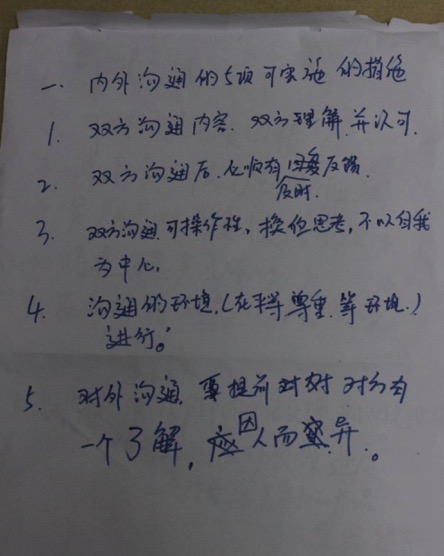 一、内外沟通的5项可实施的措施
1. 双方沟通内容.双方理解并认可.
2. 双方沟通后,必须有回复反馈.
及时.
3. 双方沟通可操作性,换位思考,不以自我
为中心.
4. 沟通的环境.(在平等尊重.等环境.)
进行。
5. 对外沟通,要提前对对方有
一个了解,因人而异。